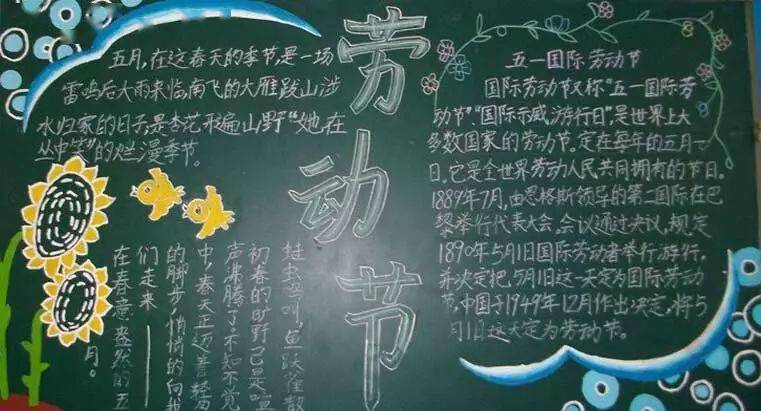 劳动节
五月,在这春天的季节,是一场
雷鸣后大雨来临,南飞的大雁跋山涉
水归家的日子,是杏花形遍山野“她在
丛中笑”的烂漫季节。
蛙虫鸟叫,鱼跃雀散
初春的旷野,已是喧
声沸腾了,不知不觉
中,春天正迈着轻盈
的脚步,悄悄的向我
们走来——
在春意盎然的五
月。
五一国际劳动节
国际劳动节又称“五一国际劳
动节”“国际示威游行日”,是世界上大
多数国家的劳动节。定在每年的五月一
日。它是全世界劳动人民共同拥有的节日。
1889年7月,由恩格斯领导的第二国际在巴
黎举行代表大会。会议通过决议,规定
1890年5月1日国际劳动者举行游行,
并决定把5月1日这一天定为国际劳动
节,中国于1949年12月作出决定,将5
月1日这天定为劳动节。